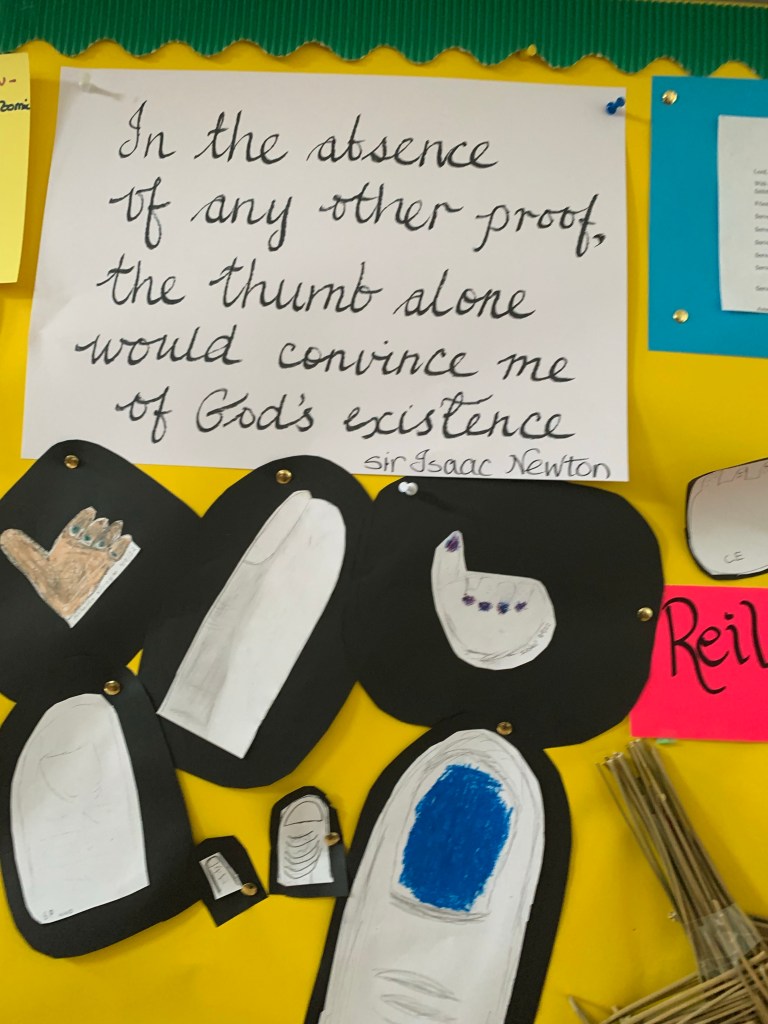 In the absence
of any other proof,
the thumb alone
would convince me
of God's existence
Sir Isaac Newton
C.E
Reil